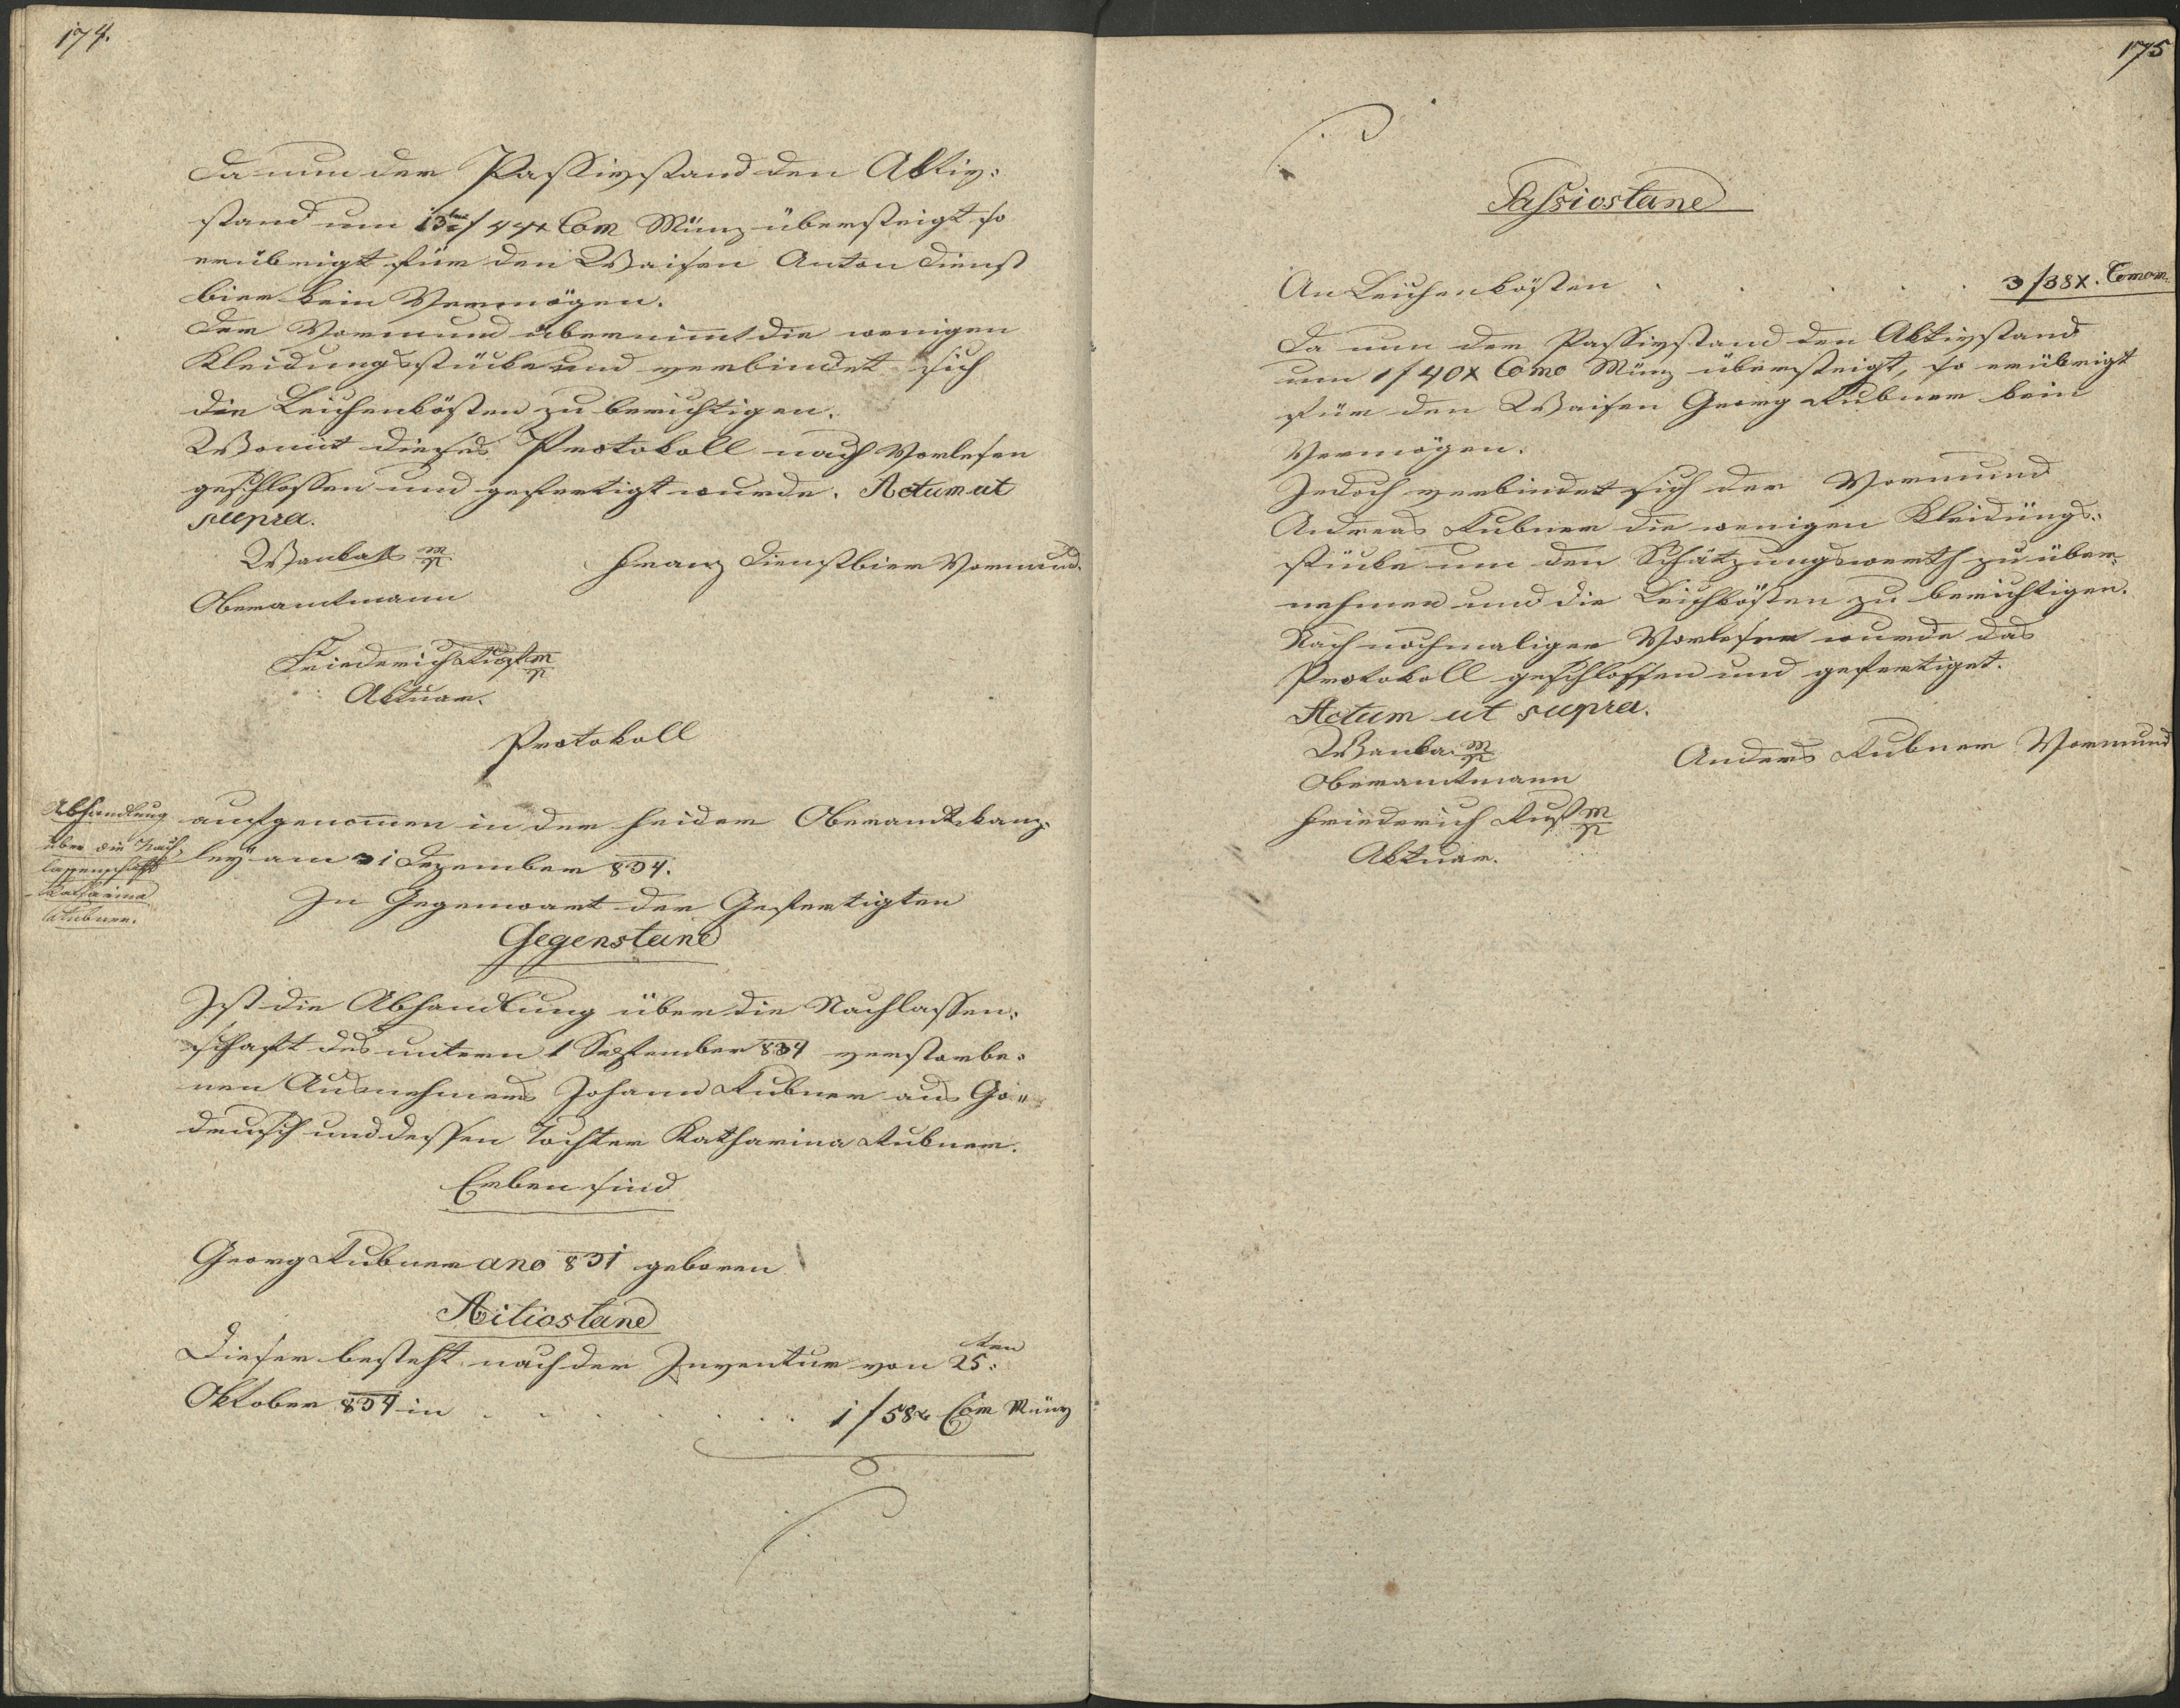 174.
Da nun der Passivstand den Aktiv-
stand um 13 f 44x Com Münz übersteigt so
erübrigt für den Waisen Anton Dienst
bier kein Vermögen.
Der Vormund übernimt die wenigen
Kleidungsstücke und verbindet sich
die Leichenkösten zu berichtigen.
Womit dieses Protokoll nach Vorlesen
geschlossen und gefertigt wurde. Actum ut
supra.
Wanka m/p
Franz Dienstbier Vormund.
Oberamtmann
Friederich Fust m/p
Aktuar.
Protokoll
Abhandlung
über die Nach-
lassenschaft
Katharina
Kubner.
aufgenomen in der heider Oberamtskanz-
leÿ am 31 Dezember 834.
In Gegenwart der Gefertigten
Gegenstand
Ist die Abhandlung über die Nachlassen:
schaft des untern 1 September 834 verstorbe:
nen Ausnehmers Johann Kubner aus Go"
drusch und dessen Tochter Katharina Kubner.
Erben sind
Georg Kubner ano 831 geboren
Activstand
Dieser besteht nach der Inventur von 25: ten
Oktober 834 in . . . . . . . 1 f 58x Com Münz
175
Passivstand
An Leichenkösten . . . . . 3 f 38x. Comom.
Da nun der Passivstand den Aktivstand
um 1 f 40x Como Münz übersteigt, so erübrigt
für den Waisen Georg Kubner kein
Vermögen.
Jedoch verbindet sich der Vormund
Andreas Kubner die wenigen Kleidungs:
stücke um den Schätzungswerth zu über-
nehmen und die Leichkösten zu berichtigen.
Nach nochmaligen Vorlesen wurde das
Protokoll geschlossen und gefertiget.
Actum ut supra.
Wanka m/p
Anders Kubner Vormund
Oberamtmann
Friederich Fust m/p
Aktuar.